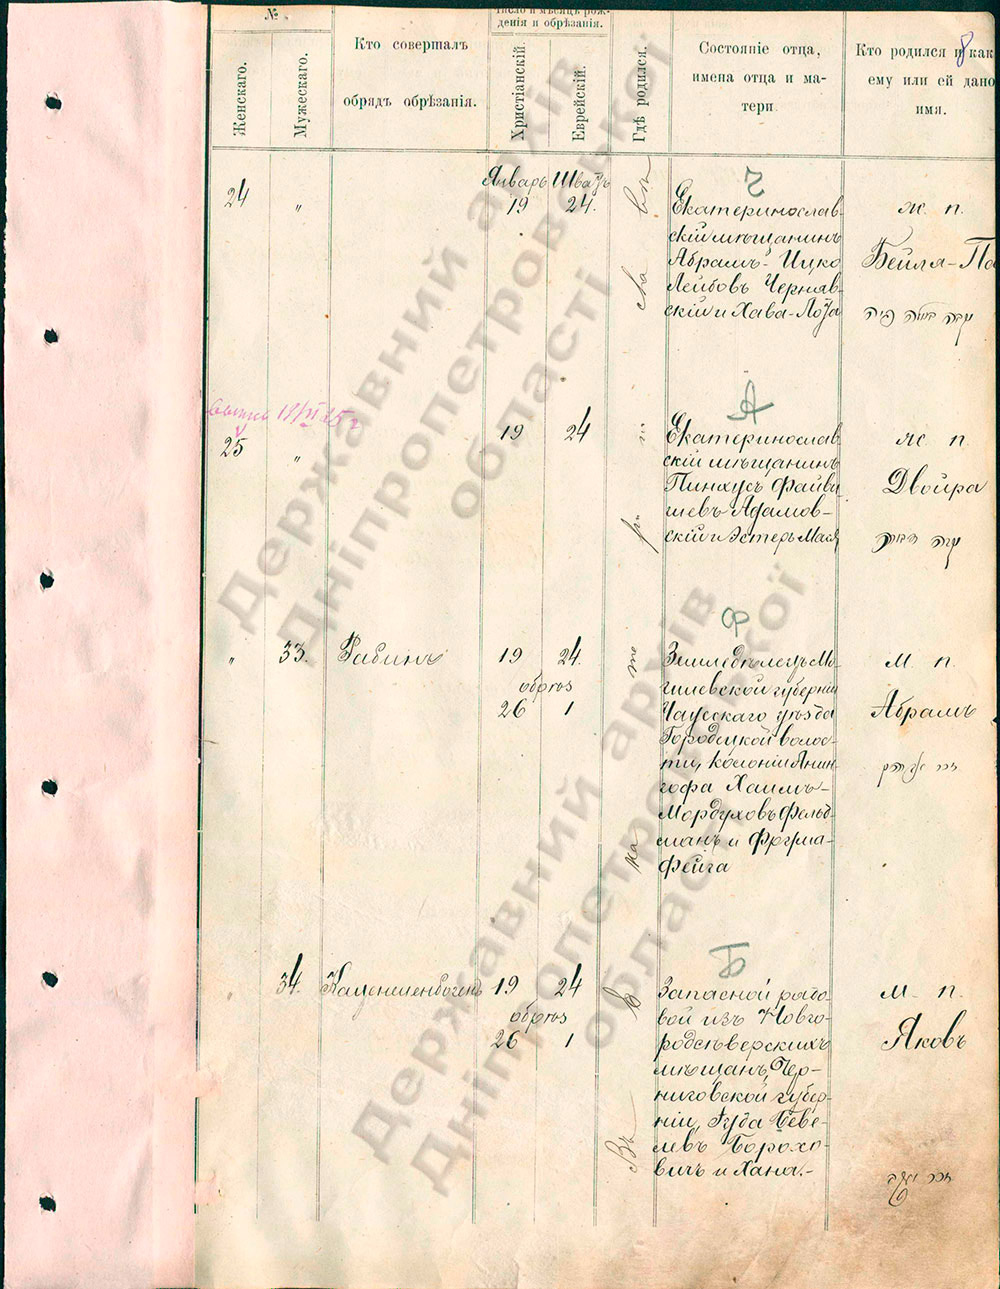 №
Женскаго.
Мужескаго.
Кто совершалъ
обрядъ обрѣзанія.
Число и мѣсяцъ рож-
денія и обрѣзанія.
Христіанскій.
Еврейскій.
Гдѣ родился.
Состояніе отца,
имена отца и ма-
тери.
Кто родился и как
ему или ей дано
имя.
8
24
"
Январь Шватъ
19 24.
Ч
Екатеринослав-
скій мѣщанинъ
Абрамъ-Ицко
Лейбовъ Черняв-
скій и Хава-
ж. п.
Бейля-
25
"
19 24
А
Екатеринослав
скій мѣщанинъ
Пинхусъ Файви
шевъ Адамов-
скій и Эстеръ Мася
ж п.
Двойра
"
33.
Рабинъ
19 24.
обрѣз
26 1
Ф
Земледѣлецъ Мо-
гилевской губерніи
Чаусскаго уѣзда
Городецкой волос-
ти, колоніи
гофа Хаимъ-
Мордуховъ Фельд-
манъ и Фрума-
Фейга
м. п.
Абрамъ
"
34.
Каценеленбогенъ
19 24
обрѣз
26 1
Въ
Б
Запасной рядо-
вой изъ Новго-
родсѣверскихъ
мѣщанъ, Чер-
ниговской губер-
ніи,
левъ Борохо-
вичъ и Хана.-
м. п.
Яковъ
Державний архів
Дніпропетровської
області
Державний архів
Дніпропетровської
області